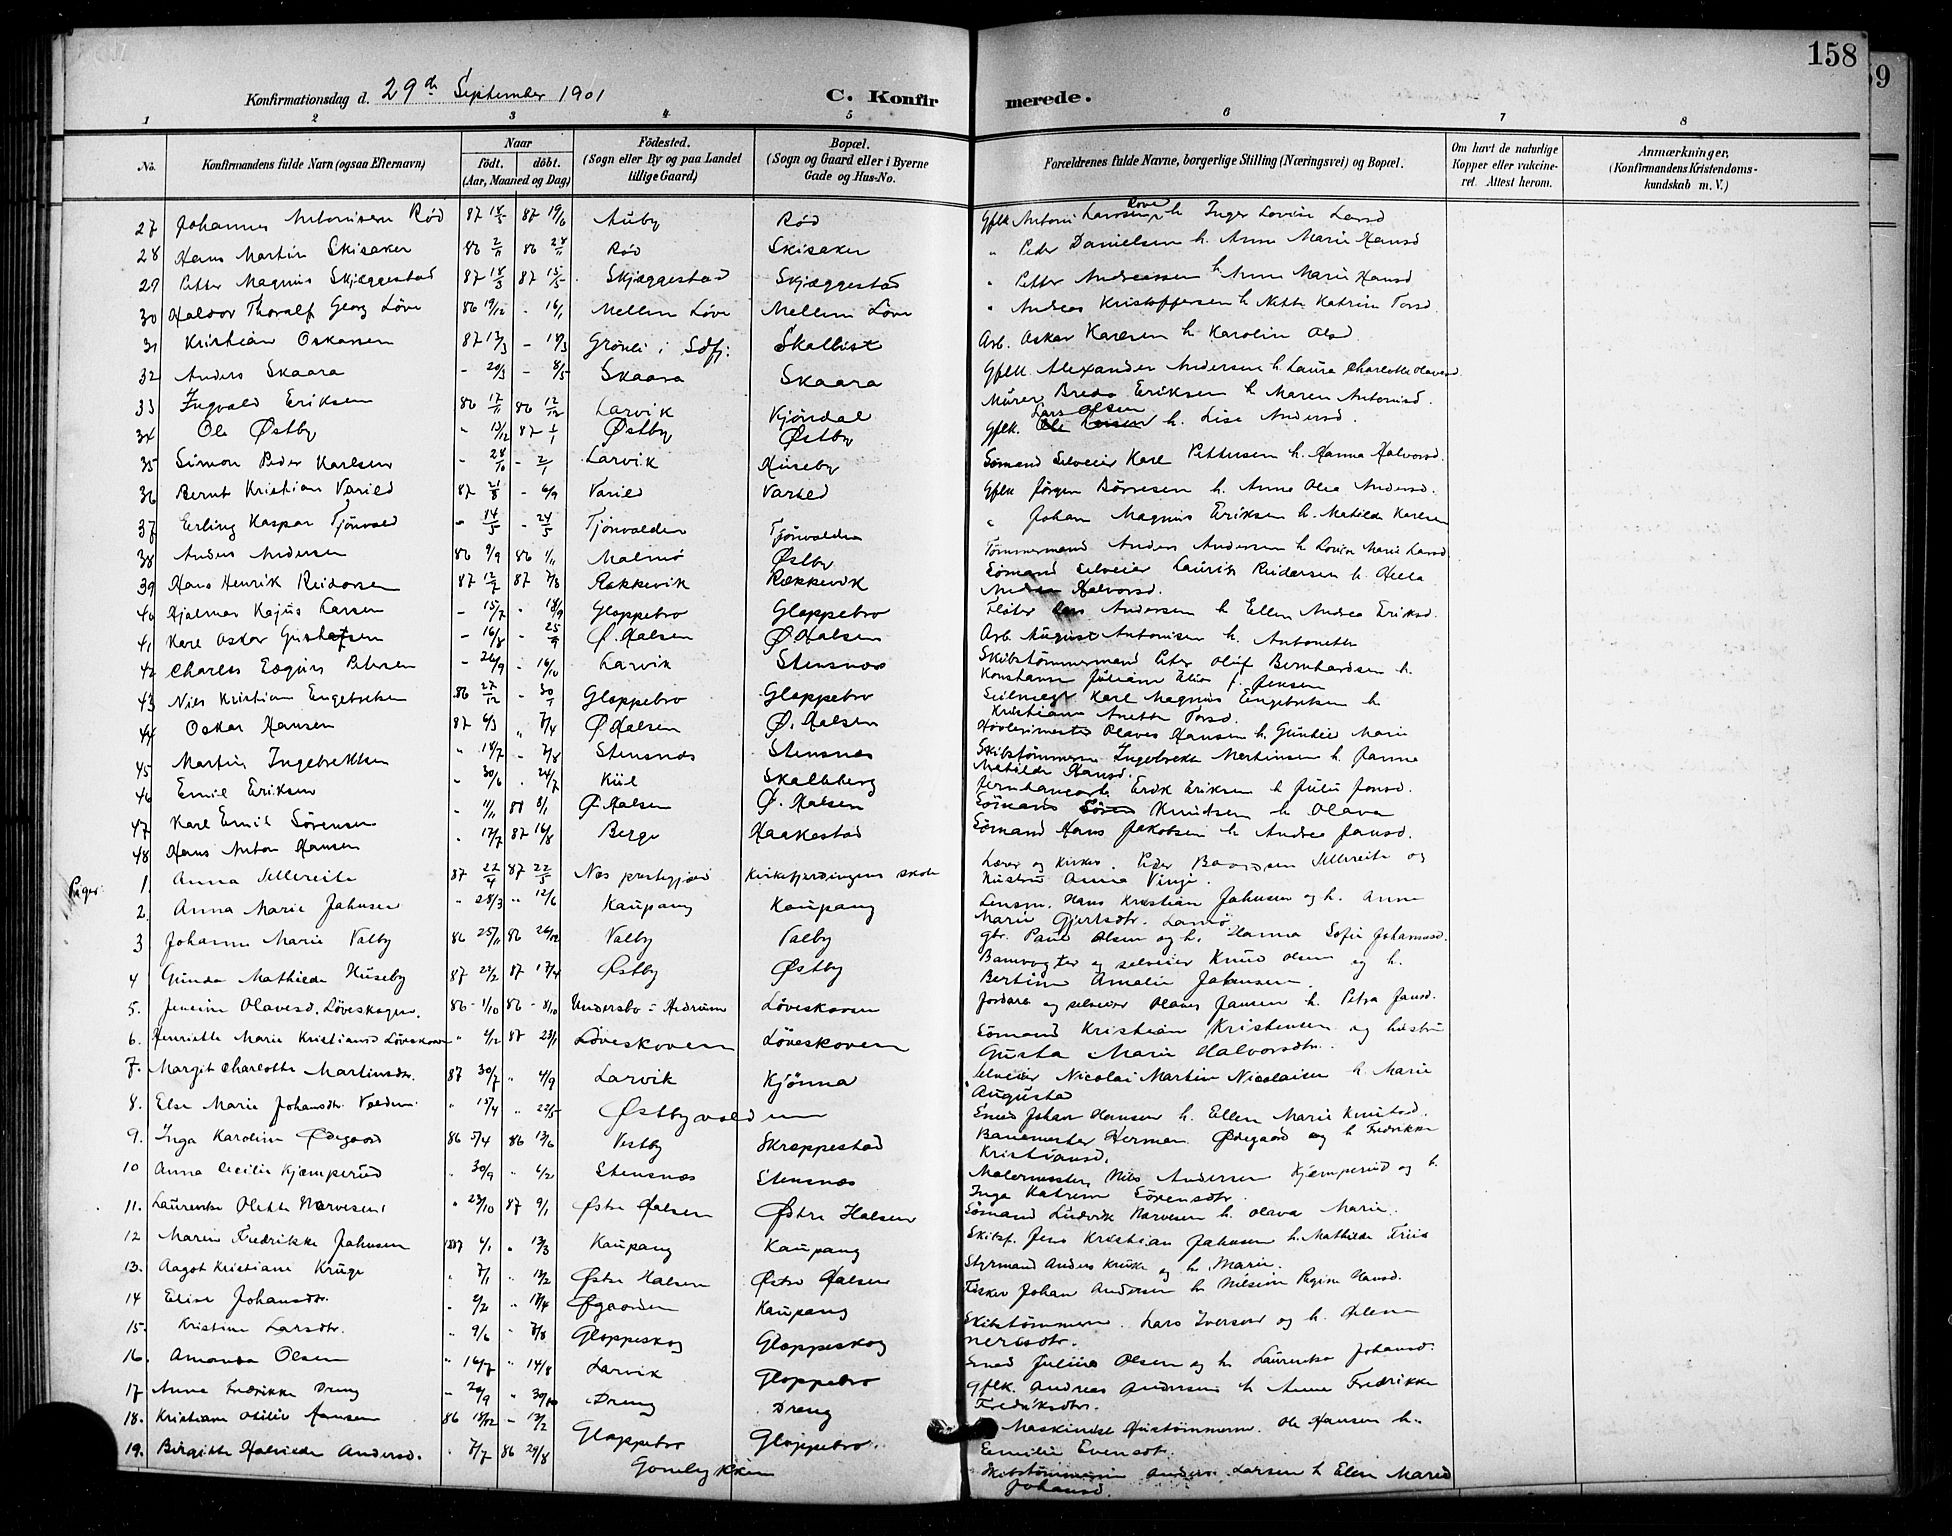 158
59
Konfirmationsdag d. 29de September 1901 C. Konfirmerede.
1 2 3 4 5 6 7 8
No. Konfirmandens fulde Navn (ogsaa Efternavn) Naar født. døbt. (Aar, Maaned og Dag) Fødested. (Sogn eller By og paa Landet tillige Gaard) Bopæl. (Sogn og Gaard eller i Byerne Gade og Hus-No. Forældrenes fulde Navne, borgerlige Stilling (Næringsvei) og Bopæl. Om havt de naturlige Kopper eller vakcineret. Attest herom. Anmærkninger, (Konfirmandens Kristendomskundskab m. V.)
27 Johannes Antonisen Rød 87 18/5 87 19/6 Auby Rød Gflk Antoni Larssen Rød h. Inger Lovise Larsd
28 Hans Martin Skisaker 86 2/11 86 28/11 Rød Skisaker " Peder Danielsen h. Anne Marie Hansd
29 Petter Magnus Skjæggestad 87 18/3 87 15/5 Skjæggestad Skjæggestad " Petter Andreassen h Anne Marie Hansd
30 Haldor Thoralf Georg Løve 86 19/12 - 16/1 Mellem Løve Mellem Løve " Andreas Kristoffersen h. Nette Katrine Torsd.
31 Kristian Oskarsen 87 12/3 - 18/3 Grønli i Sdfj: Skallist Arb. Oskar Karlsen h. Karolin Olsd
32 Anders Skaara - 20/3 - 8/5 Skaara Skaara Gflk. Alexander Andersen h. Laura Charlotte Olavesd.
33 Ingvald Eriksen 86 17/11 86 12/12 Larvik Kjøndal Murer Brede Eriksen h. Maren Antonisd.
34 Ole Østby " 13/12 87 1/1 Østby Østby Gflk. Lars Olsen h. Lise Andersd.
35 Simon Peder Karlsen - 28/10 - 2/1 Larvik Huseby Sømand Selveier Karl Pettersen h. Hanna Halvorsd.
36 Bernt Kristian Varild 87 21/8 - 6/9 Varild Varild Gflk Jørgen Børresen h. Anne Olea Andersd.
37 Erling Kaspar Tjønvold - 14/5 - 24/5 Tjønvolden Tjønvolden " Johan Magnus Eriksen h. Matilde Karlsen
38 Anders Andersen 86 9/9 86 1/11 Malmø Østby Tømmermand Anders Andersen h. Lovise Marie Larsd
39 Hans Henrik Reidarsen 87 12/2 87 7/8 Rekkevik Rækkevik Sømand selveier Laurits Reidarsen h. Helle
Andrea Halvorsd.
40 Hjalmar Kajus Larsen - 15/7 - 18/9 Gloppebro Gloppebro Fløter Lars Andersen h Ellen Andrea Eriksd.
41 Karl Oskar Gustafsen - 16/8 - 25/9 Ø. Halsen Ø. Halsen Arb. August Antonisen h. Antonette
42 Charles Petersen - 26/9 - 16/10 Larvik Stensnæs Skibstømmermand Peter Oluf Bernhardsen h.
Konstanse Juliane f. Jensen
43 Nils Kristian Engebretsen 86 27/12 - 30/1 Gloppebro Gloppebro Seilmager Karl Magnus Engebretsen h
Kristiane Anette Torsd.
44 Oskar Hansen 87 6/3 " 7/4 Ø. Halsen Ø. Halsen Høvlerimester Olaves Hansen h. Gunhild Marie
45 Martin Ingebrektsen " 18/7 - 7/8 Stensnæs Stensnæs Skibstømmerm Ingebrekt Martinsen h. Janna
Matilde Hansd.
46 Emil Eriksen - 30/6 . 24/7 Kiil Skalleberg Jernbanearb. Erik Eriksen h Julie Jonsd.
47 Karl Emil Sørensen - 11/11 88 8/1 Ø. Halsen Ø. Halsen Sømand Søren Knudsen h Olava
48 Hans Anton Hansen . 17/7 87 16/8 Berge Haakestad Sømand Hans Jakobsen h Andrea Jansd.
Piger
1. Anna Sellereite 87 22/4 87 22/5 Nes prestegjeld Kirkefjerdingens skole Lærer og Kirkes. Peder Sellereite og
Hustru Anna Vinje.
2. Anna Marie Jahnsen " 28/3 " 12/6 Kaupang Kaupang Lensm. Hans Kristian Jahnsen og h. Anne
Marie Gjertsdtr. Lamø.
3 Johanne Marie Valby 86 25/11 86 26/12 Valby Valby Gbr. Paul Olsen og h. Hanna Sofie Johannesd.
4 Gunda Mathilde Huseby 87 22/2 87 17/4 Østby Østby Banevogter og selveier Knud Olsen og h.
Bertine Amalie Johansen.
5. Jensine Olavesd. Løveskogen. 86 - 1/10 86 - 31/10 Undersbo i Hedrum Løveskoven Jordarb og selveier Olaves Jansen h. Petra Jansd.
6. Henriette Marie Kristiansd Løveskoven " 4/12 87 23/1 Løveskoven Løveskoven Sømand Kristian Kristensen og hustru
Gusta Marie Halvorsdtr.
7. Margit Charlotte Martinsdtr. 87 30/7 " 4/9 Larvik Kjønna Selveier Nicolai Martin Nicolaisen h. Marie
Augusta
8. Else Marie Johansdtr. Volden. " 15/4 " 22/5 Østbyvolden Smed Johan Hansen h. Ellen Marie Knutsd.
9. Inga Karoline Ødegaard 86 5/4 86 13/6 Vestby Skreppestad Banemester Herman Ødegaard og h Fredrikke
Kristiansd.
10 Anna Cecilie Kjæmperud . 30/9 " 6/2 Stensnæs Stensnæs Malermester Nils Andersen Kjæmperud og h.
Inga Katrine Sørensdtr.
11. Laurentse Olette Narvesen " 23/10 87 9/1 Østre Halsen Østre Halsen Sømand Ludvik Narvesen h. Olava Marie.
12 Maren Fredrikke Jahnsen 1887 4/1 " 13/3 Kaupang Kaupang Skibsf. Jens Kristian Jahnsen h. Mathilde Friis
13. Aagot Kristiane Kruge . 7/1 " 13/2 Østre Halsen Østre Halsen Styrmand Anders Kruke og h. Marie.
14 Elise Johansdtr. . 2/2 " 17/4 Øgaarden Kaupang Fisker Johan Andersen h. Nilsine Regine Hansd.
15. Kristine Larsdtr. " 9/6 " 7/8 Gloppeskog Gloppeskog Skibstømmerm. Lars Iversen og h. Helene
Nersdtr.
16. Amanda Olsen " 16/7 " 14/8 Larvik Gloppebro Smed Julius Olsen og h. Laurentse Johansd.
17 Anne Fredrikke Dreng - 20/9 " 30/10 Dreng Dreng Gflk. Andreas Andersen h Anne Fredrikke
Fredriksdtr.
18. Kristiane Otilie Hansen 86 18/12 - 13/2 Gloppebro Gloppebro. Maskinist Hustømmerm. Ole Hansen h.
Emilie Evensdtr.
19. Birgitte Halvilde Andersd. . 7/7 86 29/8 Gonlykken Skibstømmerm Anders Larsen h Elen Marie
Johansd.